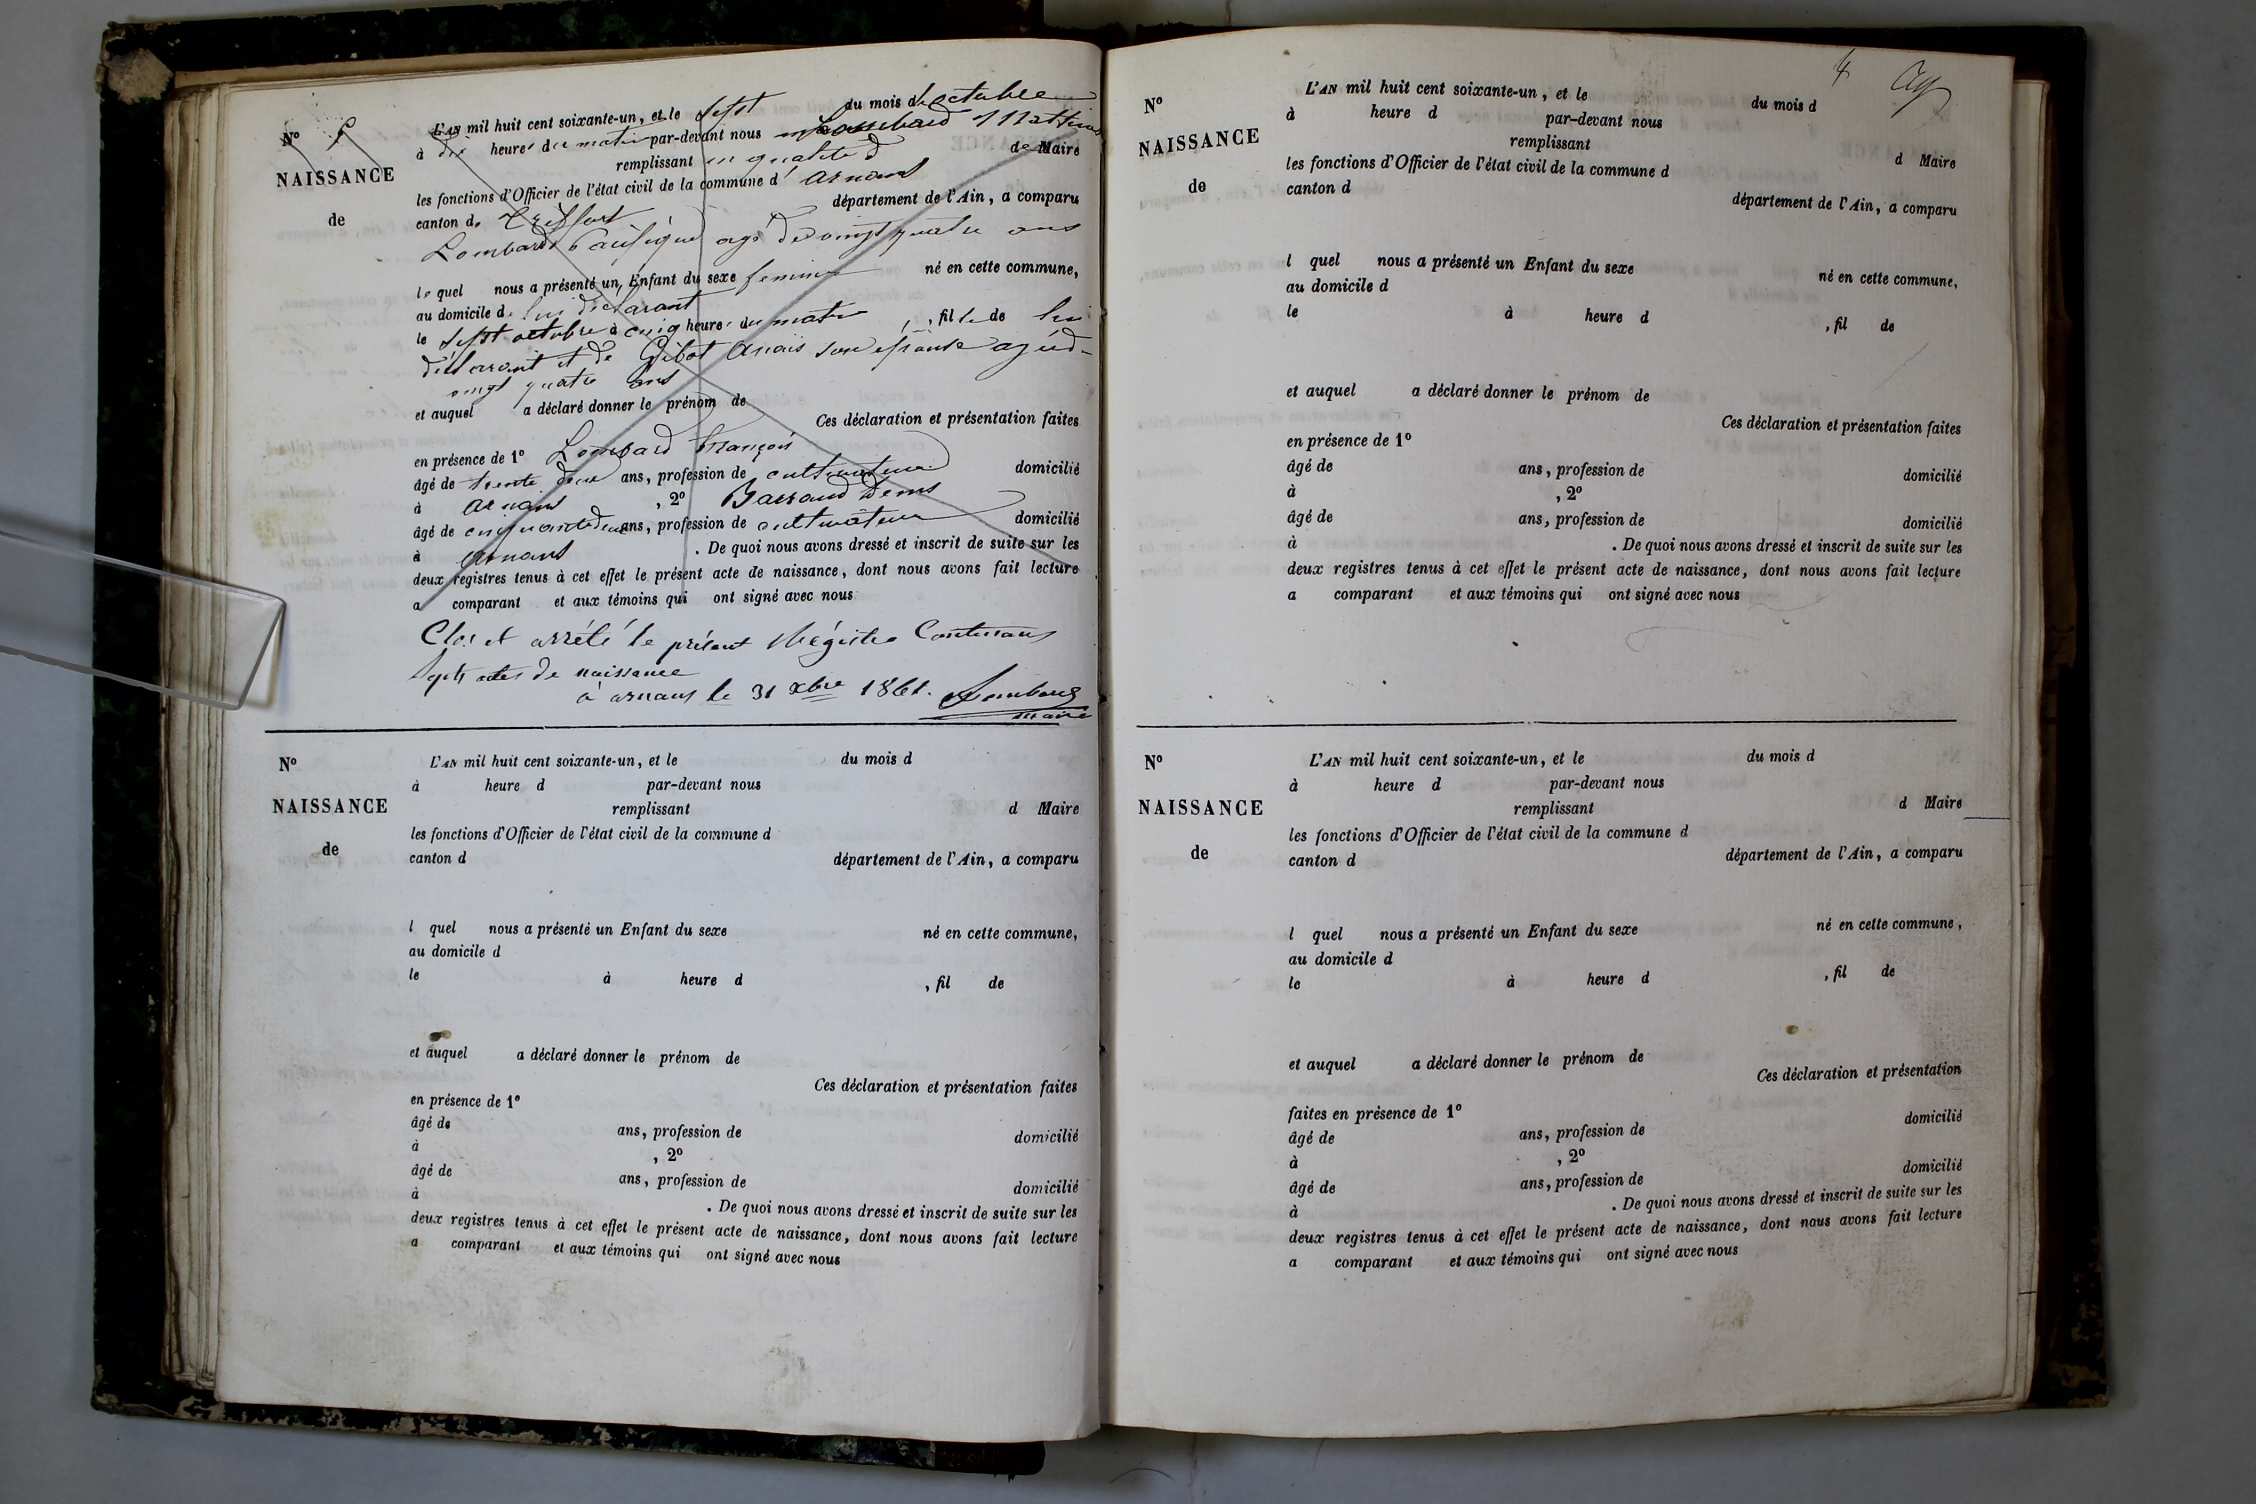 N° 8
NAISSANCE
de
L'AN mil huit cent soixante-un, et le Sept du mois d'octobre
à dix heures du matin par-devant nous Lombard Mathieu
remplissant en qualité d de Maire
les fonctions d'Officier de l'état civil de la commune d'arnans
canton de Treffort département de l'Ain, a comparu
Lombard Pacifique agé de vingt quatre ans
le quel nous a présenté un Enfant du sexe feminin né en cette commune,
au domicile de lui déclarant
le Sept octobre à cinq heure du matin , fille de lui
déclarant et de Gibot Anais son épouse agée d-
vingt quatre ans
et auquel a déclaré donner le prénom de
Ces déclaration et présentation faites
en présence de 1° Lombard François
âgé de trente deux ans, profession de cultivateur domicilié
à arnans , 2° Barraud Denis
âgé de cinquante deux ans, profession de cultivateur domicilié
à arnans . De quoi nous avons dressé et inscrit de suite sur les
deux registres tenus à cet effet le présent acte de naissance, dont nous avons fait lecture
a comparant et aux témoins qui ont signé avec nous
Clos et arrêté le présent Régistre Contenant
Sept actes de naissance
à arnans le 31 xbre 1861. Lombard
maire
N°
NAISSANCE
de
L'AN mil huit cent soixante-un, et le du mois d
à heure d par-devant nous
remplissant d Maire
les fonctions d'Officier de l'état civil de la commune d
canton d département de l'Ain, a comparu
l quel nous a présenté un Enfant du sexe né en cette commune,
au domicile d
le à heure d , fil de
et auquel a déclaré donner le prénom de
Ces déclaration et présentation faites
en présence de 1°
âgé de ans, profession de domicilié
à , 2°
âgé de ans, profession de domicilié
à . De quoi nous avons dressé et inscrit de suite sur les
deux registres tenus à cet effet le présent acte de naissance, dont nous avons fait lecture
a comparant et aux témoins qui ont signé avec nous
4
N°
NAISSANCE
de
L'AN mil huit cent soixante-un, et le du mois d
à heure d par-devant nous
remplissant d Maire
les fonctions d'Officier de l'état civil de la commune d
canton d département de l'Ain, a comparu
l quel nous a présenté un Enfant du sexe né en cette commune,
au domicile d
le à heure d , fil de
et auquel a déclaré donner le prénom de
Ces déclaration et présentation faites
en présence de 1°
âgé de ans, profession de domicilié
à , 2°
âgé de ans, profession de domicilié
à . De quoi nous avons dressé et inscrit de suite sur les
deux registres tenus à cet effet le présent acte de naissance, dont nous avons fait lecture
a comparant et aux témoins qui ont signé avec nous
N°
NAISSANCE
de
L'AN mil huit cent soixante-un, et le du mois d
à heure d par-devant nous
remplissant d Maire
les fonctions d'Officier de l'état civil de la commune d
canton d département de l'Ain, a comparu
l quel nous a présenté un Enfant du sexe né en cette commune,
au domicile d
le à heure d , fil de
et auquel a déclaré donner le prénom de
Ces déclaration et présentation
faites en présence de 1° domicilié
âgé de ans, profession de
à , 2° domicilié
âgé de ans, profession de
à . De quoi nous avons dressé et inscrit de suite sur les
deux registres tenus à cet effet le présent acte de naissance, dont nous avons fait lecture
a comparant et aux témoins qui ont signé avec nous